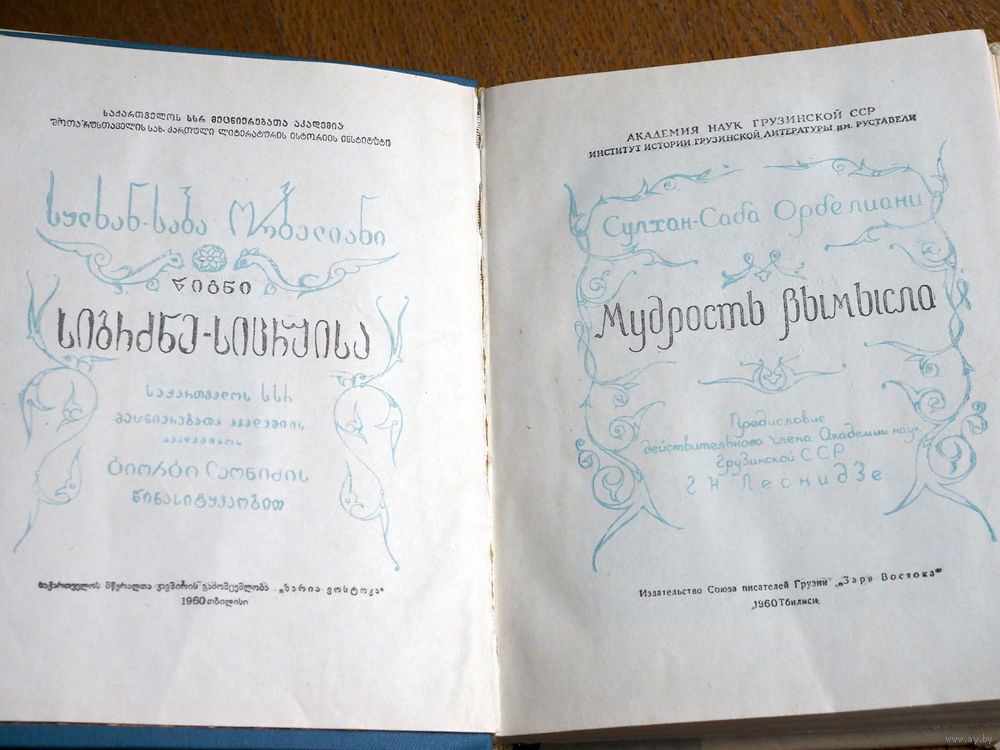 საქართველოს სსრ მეცნიერებათა აკადემია
შოთა რუსთაველის სახ. ქართული ლიტერატურის ისტორიის ინსტიტუტი
სულხან-საბა ორბელიანი
წიგნი
სიბრძნე-სიცრუისა
საქართველოს სსრ
მეცნიერებათა აკადემიის
აკადემიკოს
გიორგი ლეონიძის
წინასიტყვაობით
საქართველოს მწერალთა კავშირის გამომცემლობა „ზარია ვოსტოკა“
1960 თბილისი
АКАДЕМИЯ НАУК ГРУЗИНСКОЙ ССР
ИНСТИТУТ ИСТОРИИ ГРУЗИНСКОЙ ЛИТЕРАТУРЫ ИМ. РУСТАВЕЛИ
Сулхан-Саба Орбелиани
Мудрость вымысла
Предисловие
действительного члена Академии наук
Грузинской ССР
Г Н Леонидзе
Издательство Союза писателей Грузии „Заря Востока“
1960 Тбилиси
www.ay.by